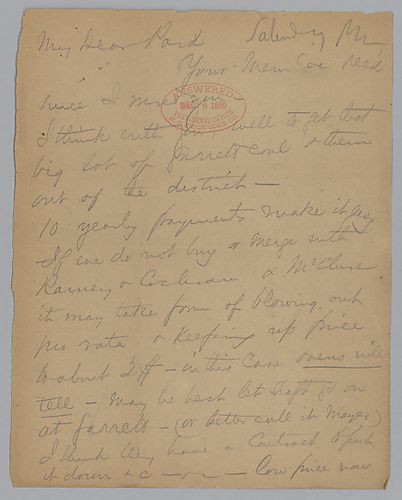 My Dear Pard Saturday PM
Your Mem &c recd
ANSWERED
DEC 9 1890
PRESIDENT'S OFFICE
H.C. FRICK COKE CO.
Since I
I think with you well to get that
big lot of Garrett coal & them
out of the district —
10 yearly payments make it easy
If we do not buy or merge with
Rainey & Cochran & McClure
it may take form of blowing out
pro rata & Keeping up price
to about 2$ — in this case ovens will
tell — May be best let shaft go on
at Garrett — (or better call it Moyer)
I think they have a Contract to put
it down &c — or — Low price now